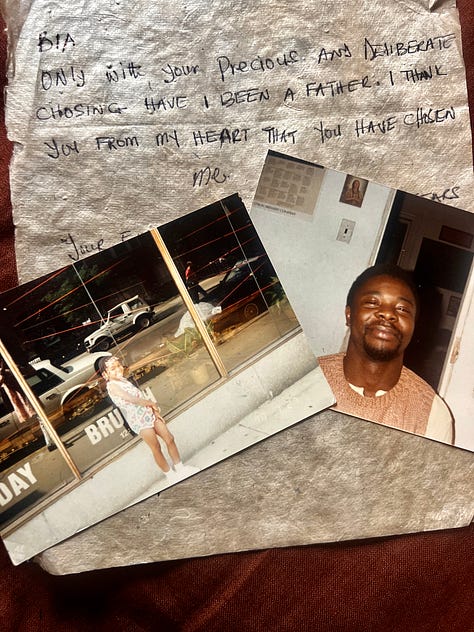 BIA
ONLY with your Precious AND DELIBERATE
CHOSING HAVE I BEEN A FATHER. I THANK
YOU FROM MY HEART THAT YOU HAVE CHOSEN
me.
Your
DAY
BRU
12